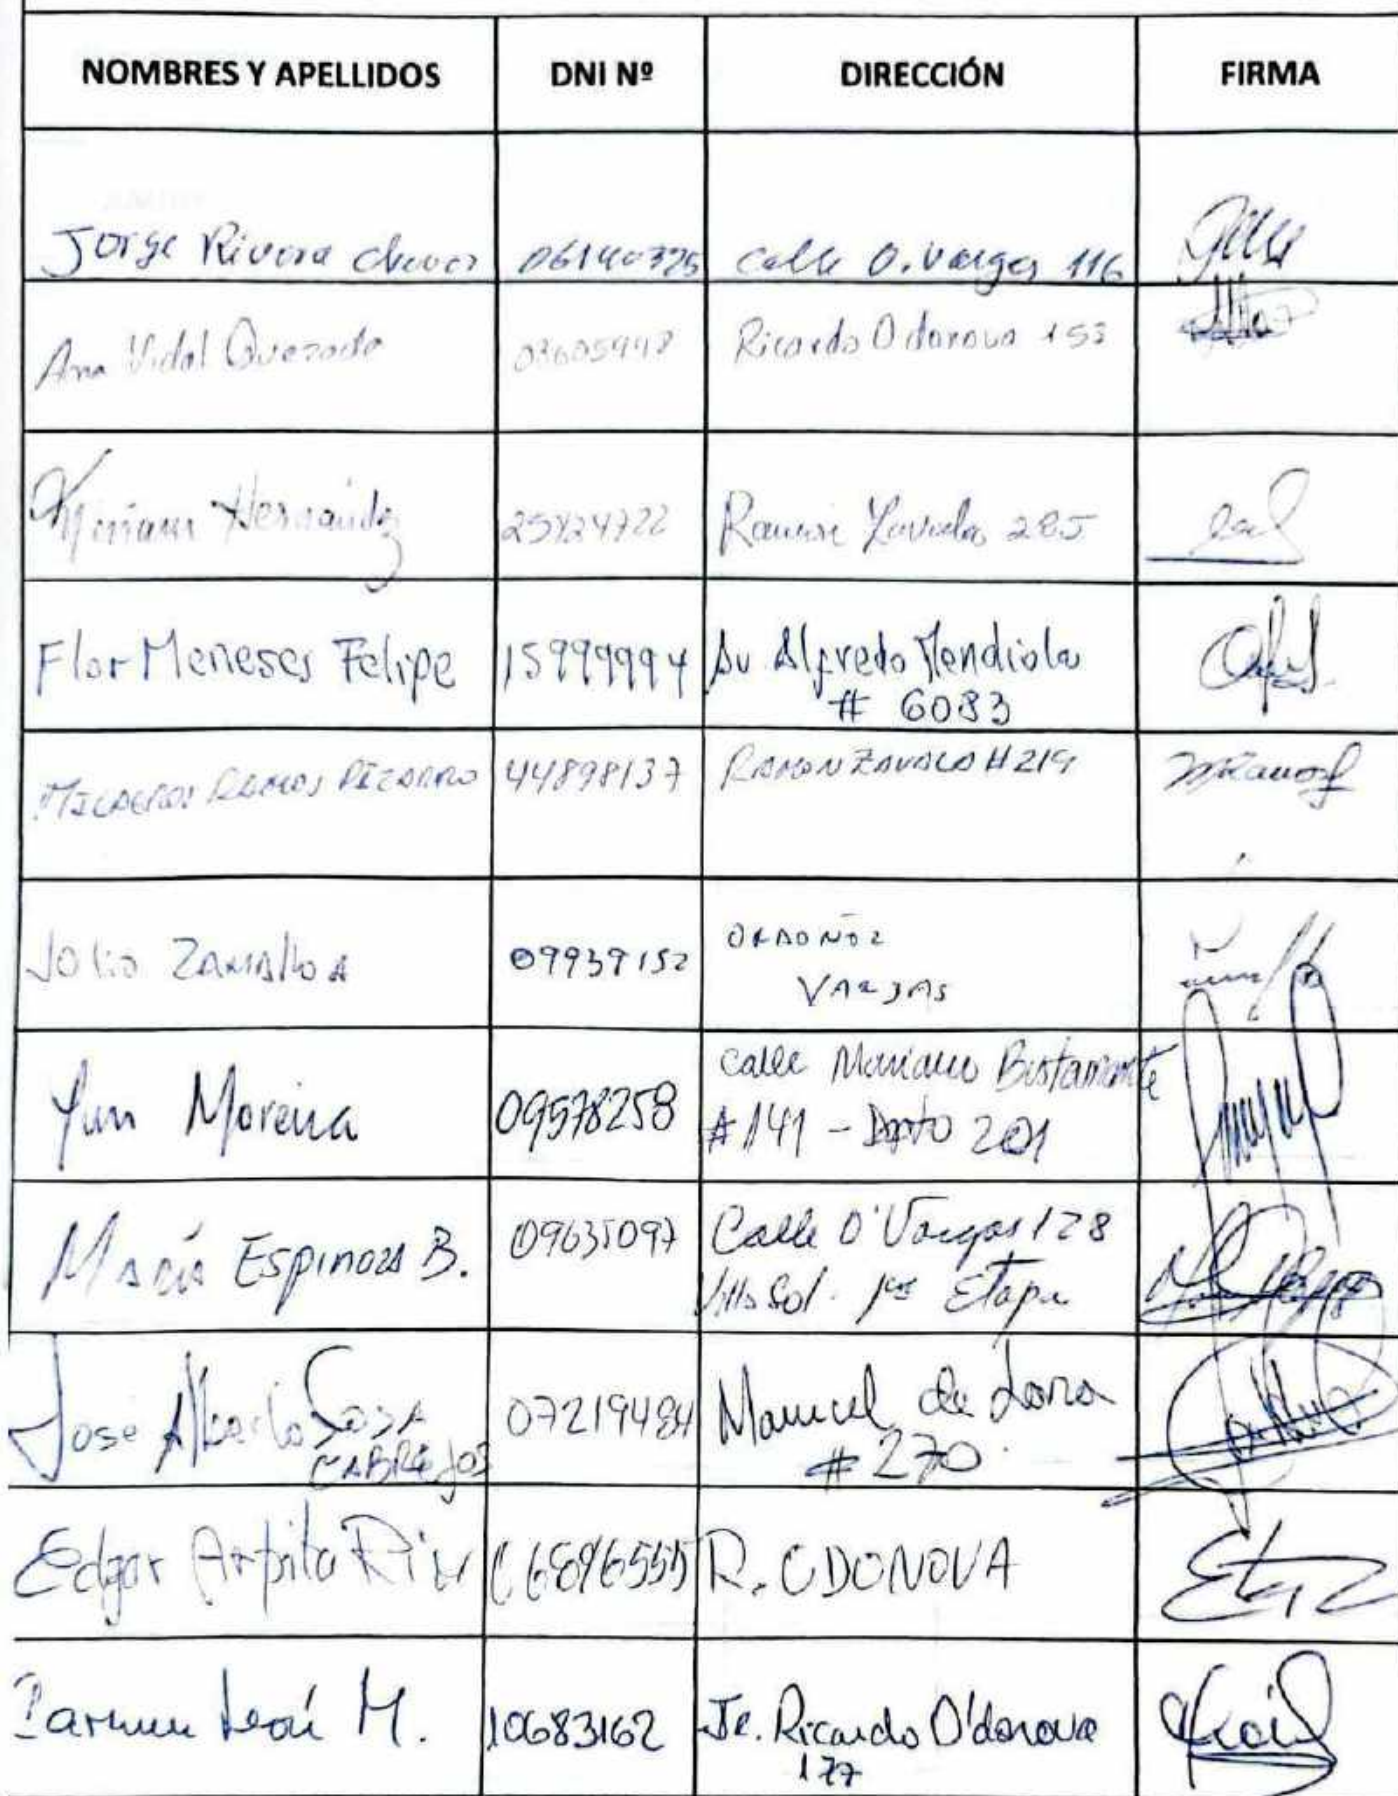 NOMBRES Y APELLIDOS DNI Nº DIRECCIÓN FIRMA
Jorge Rivera Chavez 06140325 calle O. Vargas 116
Ana Vidal Quezada Ricardo Odonova 153
Miriam Hernández 25424722 Ramon Zavala 285
Flor Meneses Felipe 15999994 Av Alfredo Mendiola
# 6083
MILAGROS RAMOS PIZARRO 44898137 RAMON ZAVALA # 219
JULIO ZAMALLOA 09939152 ORDOÑOZ
VARGAS
Moreira 09578258 calle Mariano Bustamante
#141 - Dpto 201
María Espinoza B. 09635097 Calle O' Vargas 128
Villa Sol. 1ra Etapa
José Alberto Sosa 07219484 Manuel de Lara
CABREJOS # 270
Edgar Arpita R. ODONOVA
Carmen León M. 10683162 Jr. Ricardo O'donova
177